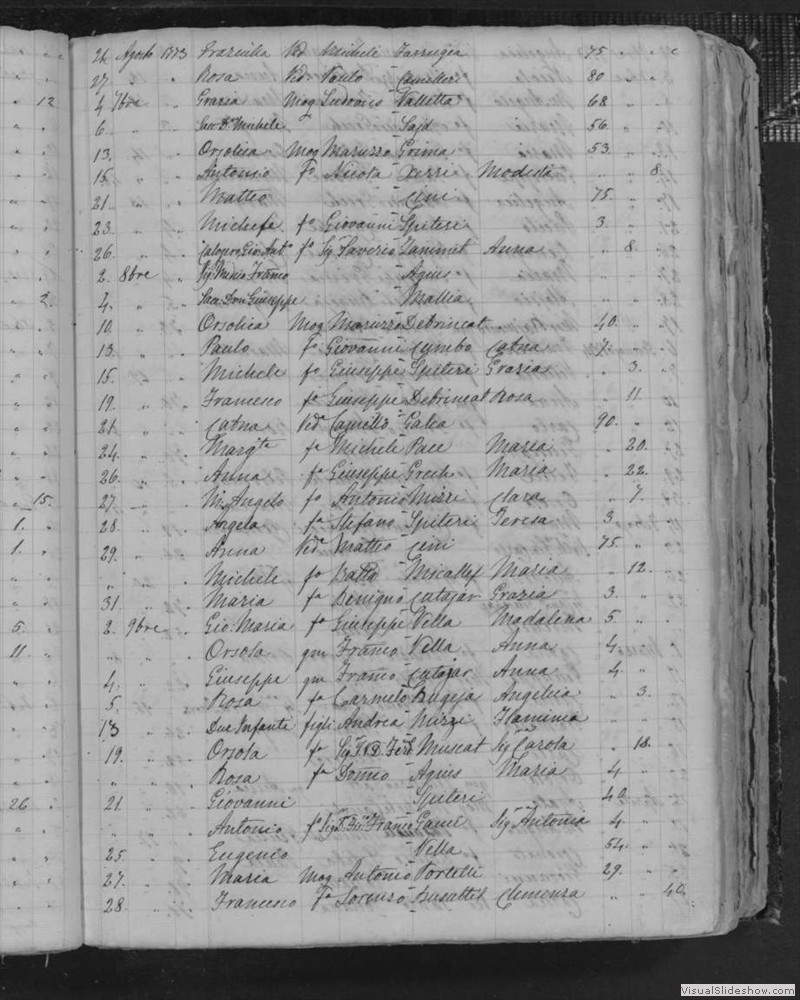 12
2
15
1
1
5
11
26
24 Agosto 1773 Graziulla Vd. Micheli Farrugia 75 " "
27 " " Rosa Vid. Paulo Camilleri 80 " "
4 7bre " Grazia Mog Ludovico Valletta 68 " "
6 " " Sac. D. Michele Sajd 56 " "
13 " " Orsolica Mog Maruzzo Grima 53 " "
15 " " Antonio fo Nicola Xerri Modesta " " 8
21 " " Matteo Cini 75 " "
23 " " Michele fo Giovanni Spiteri 3 " "
26 " " Calogero Gio. Anto fo Sig Saverio Zammit Anna " 8 "
2 8bre " Franco Agius " "
4 " " Sac. Don Giuseppe Mallia " "
10 " " Orsolica Mog Maruzzo Debrincat 40 " "
13 " " Paulo fo Giovanni Cumbo Catna 7 " "
15 " " Michele fo Giuseppe Spiteri Grazia " 3 "
19 " " Francesco fo Giuseppe Debrincat Rosa " 11 "
21 " " Catna Vda Camillo Galea 90 " "
24 " " Margta fa Micheli Pace Maria " 20 "
26 " " Anna fa Giuseppe Grech Maria " 22 "
27 " " Ml. Angelo fo Antonio Mizzi Clara " 7 "
28 " " Angela fa Stefano Spiteri Teresa 3 " "
29 " " Anna Vda Matteo Cini 75 " "
" " " Michele fo Batta Micallef Maria " 12 "
31 " " Maria fa Benigno Cutajar Grazia 3 " "
2 9bre " Gio: Maria fo Giuseppe Vella Madalena 5 " "
" " " Orsola qm Franco Vella Anna 4 " "
4 " " Giuseppe qm Franco Cutajar Anna 4 " "
5 " " Rosa fa Carmelo Bugeja Angelica " 3 "
13 " " Due Infante figli Andrea Mizzi Flaminia " " "
19 " " Orsola fa Sig. Muscat Sig. Carola " 18 "
" " " Rosa fa Domco Agius Maria 4 " "
21 " " Giovanni Spiteri 40 " "
" " " Antonio fo Sig. Franco Gauci Siga Antonia 4 " "
25 " " Eugenio Vella 54 " "
27 " " Maria Mog Antonio Portelli 29 " "
28 " " Francesco fo Lorenzo Busuttil Clemenza " " 40
VisualSlideshow.com